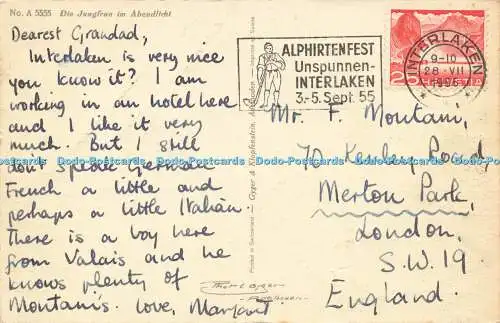 No. A 5555 Die Jungfrau im Abendlicht
Dearest Grandad,
Interlaken is very nice
you know it? I am
working in an hotel here
and I like it very
much. But I still
don't speak German
French a little and
perhaps a little Italian.
There is a boy here
from Valais and he
knows plenty of
Montani's. Love, Margaret
ALPHIRTENFEST
Unspunnen-
INTERLAKEN
3.-5. Sept. 55
INTERLAKEN
9-10
28 VII
1955
Mr. F. Montani,
70 Road,
Merton Park,
London,
S.W.19.
England.
Dodo-Postcards Dodo-Postcards Dodo-Postcards Dodo-Postcards Dodo-Postcards